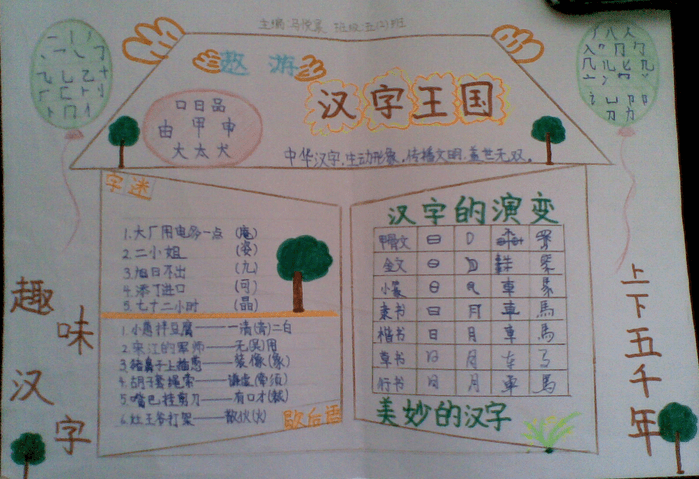 主编:马俊呈、班级:五(2)班
遨游
汉字王国
口日品
由甲申
大太犬
中华汉字,生动形象,传播文明,盖世无双。
字迷
1.大厂用电多一点 (庵)
2.二小姐 (姿)
3.旭日不出 (九)
4.添丁进口 (可)
5.七十二小时 (晶)
1.小葱拌豆腐——一清(青)二白
2.宋江的军师——无(吴)用
3.猪鼻子上插葱——装像(象)
4.胡子套绳索——谦虚(牵须)
5.嘴巴挂剪刀——有口才(裁)
6.灶王爷打架——散伙(火)
歇后语
汉字的演变
甲骨文
金文
小篆 車
隶书 日 月 車 馬
楷书 日 月 車 馬
草书 日 月
行书 日 月 車 馬
美妙的汉字
趣味汉字
上下五千年